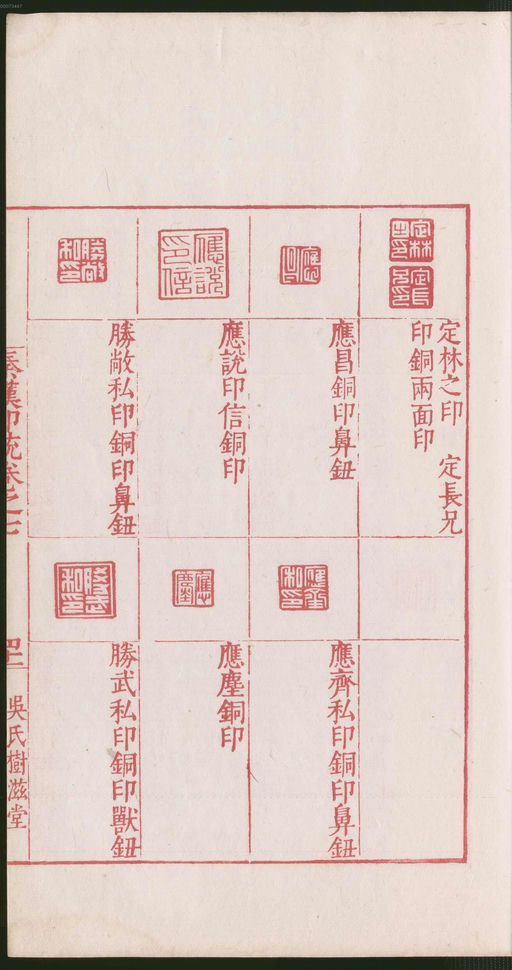 定林之印　定長兄
印銅兩面印
應昌銅印鼻鈕
應說印信銅印
勝敞私印銅印鼻鈕
應齊私印銅印鼻鈕
應塵銅印
勝武私印銅印獸鈕
秦漢印統卷之七
吳氏樹滋堂
00073447